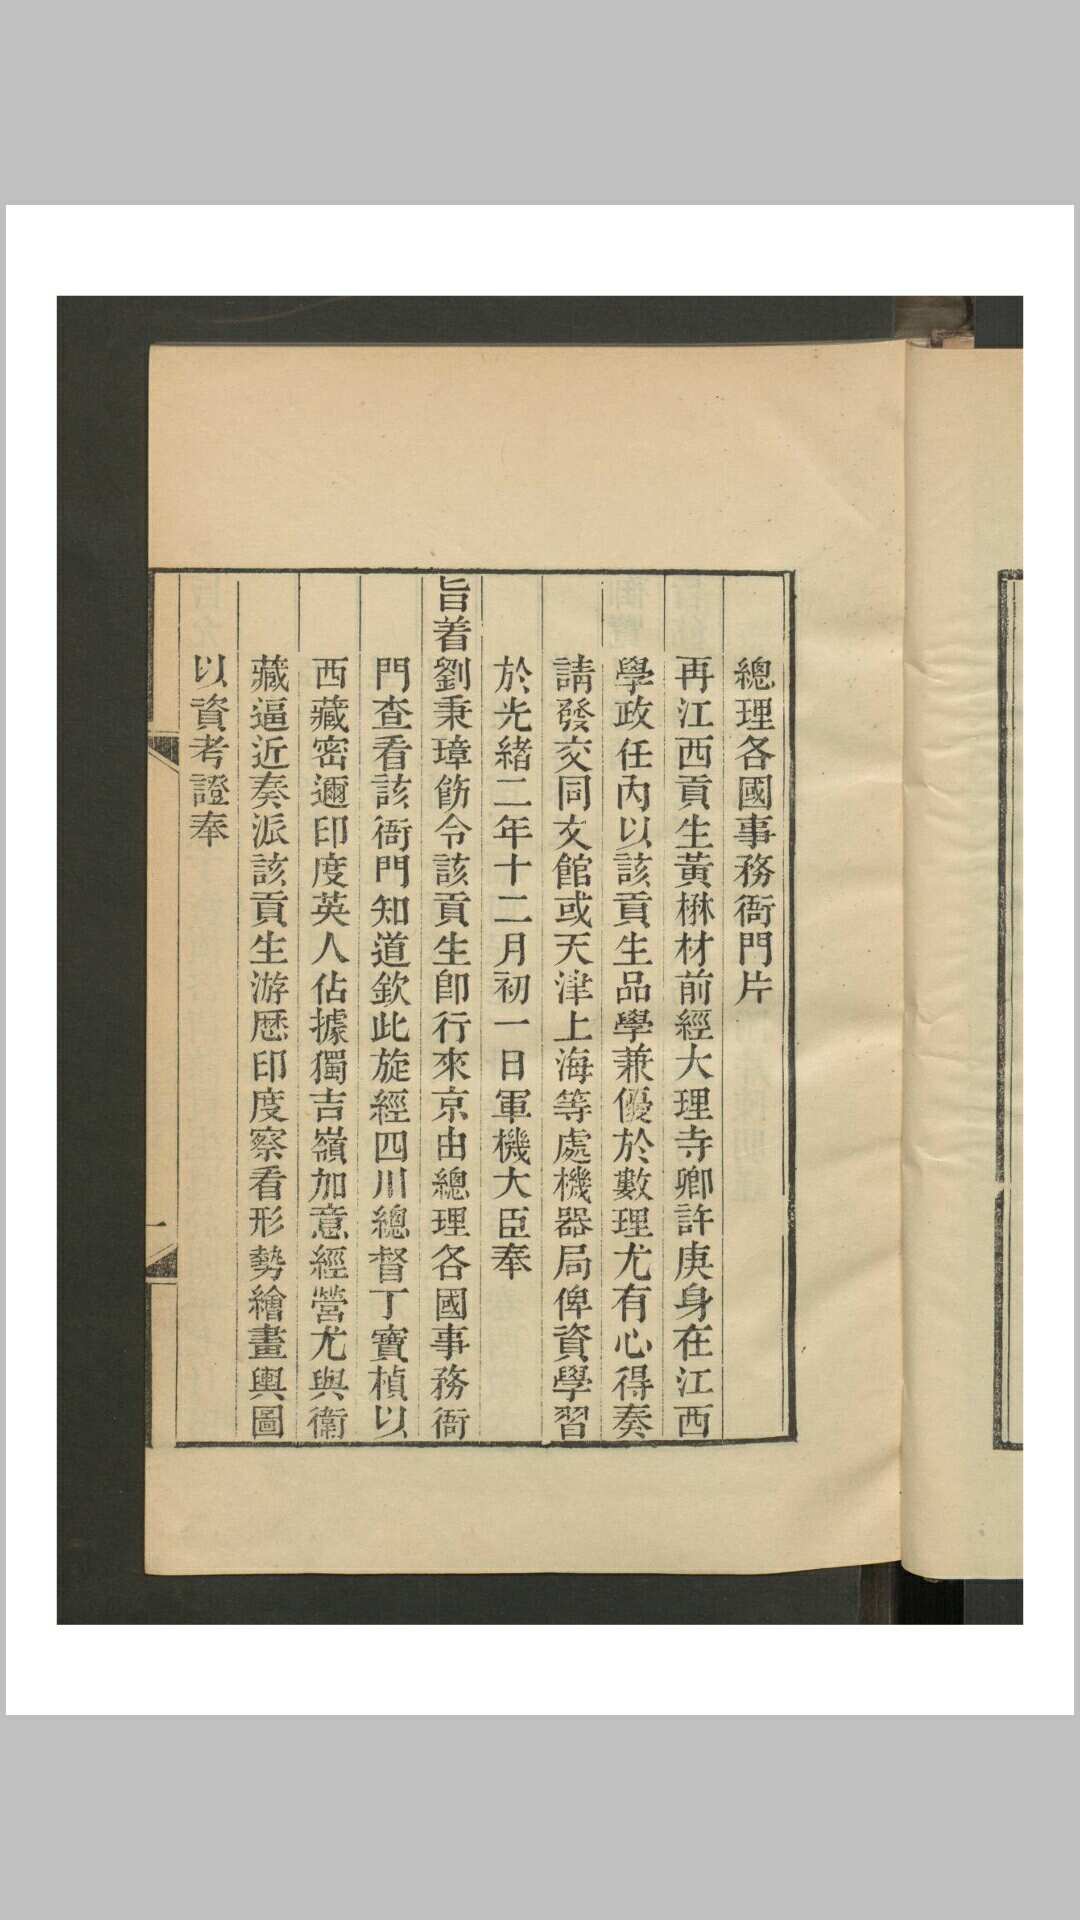 總理各國事務衙門片
再江西貢生黃楙材前經大理寺卿許庚身在江西
學政任內以該貢生品學兼優於數理尤有心得奏
請發交同文館或天津上海等處機器局俾資學習
於光緒二年十二月初一日軍機大臣奉
旨着劉秉璋飭令該貢生卽行來京由總理各國事務衙
門查看該衙門知道欽此旋經四川總督丁寶楨以
西藏密邇印度英人佔據獨吉嶺加意經營尤與衛
藏逼近奏派該貢生游歷印度察看形勢繪畫輿圖
以資考證奉
一